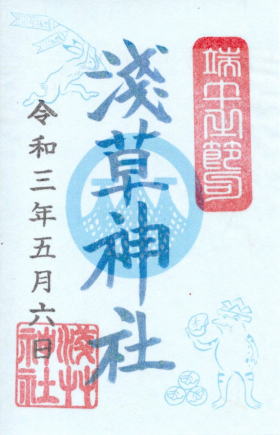 端午之節句
淺草神社
令和三年五月六日
淺草神社